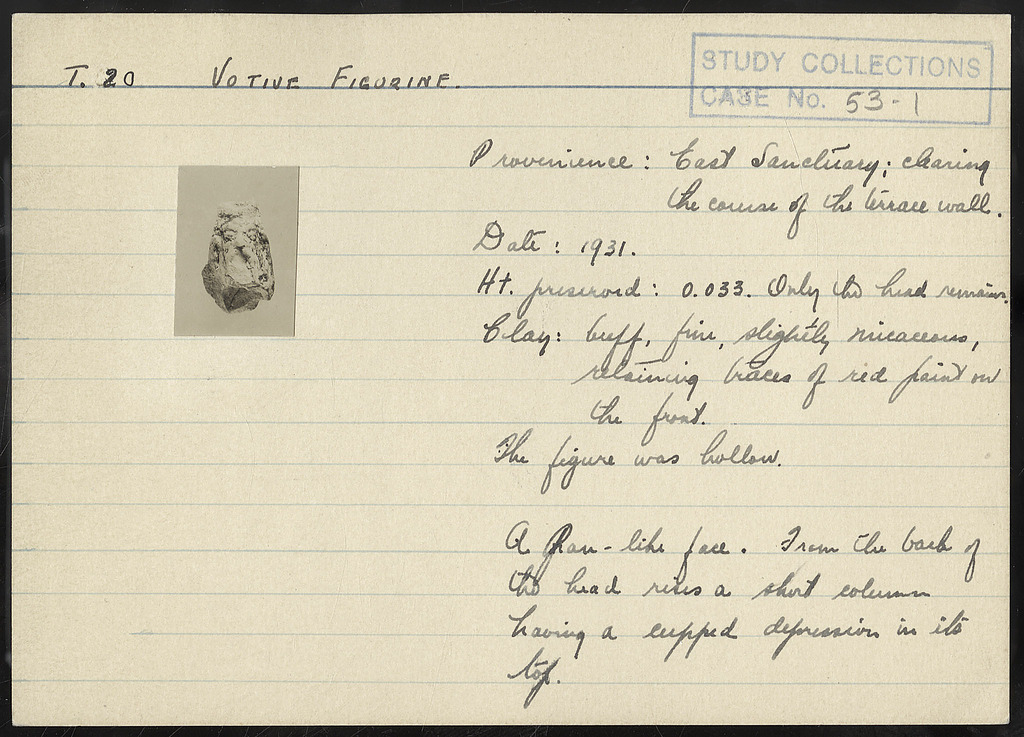 T. 20 VOTIVE FIGURINE.
STUDY COLLECTIONS
CASE No. 53-1
Provenience: East Sanctuary; clearing
the course of the terrace wall.
Date: 1931.
Ht. preserved: 0.033. Only the head remains.
Clay: buff, fine, slightly micaceous,
retaining traces of red paint on
the front.
The figure was hollow.
A Pan-like face. From the back of
the head rises a short column
having a cupped depression in its
top.